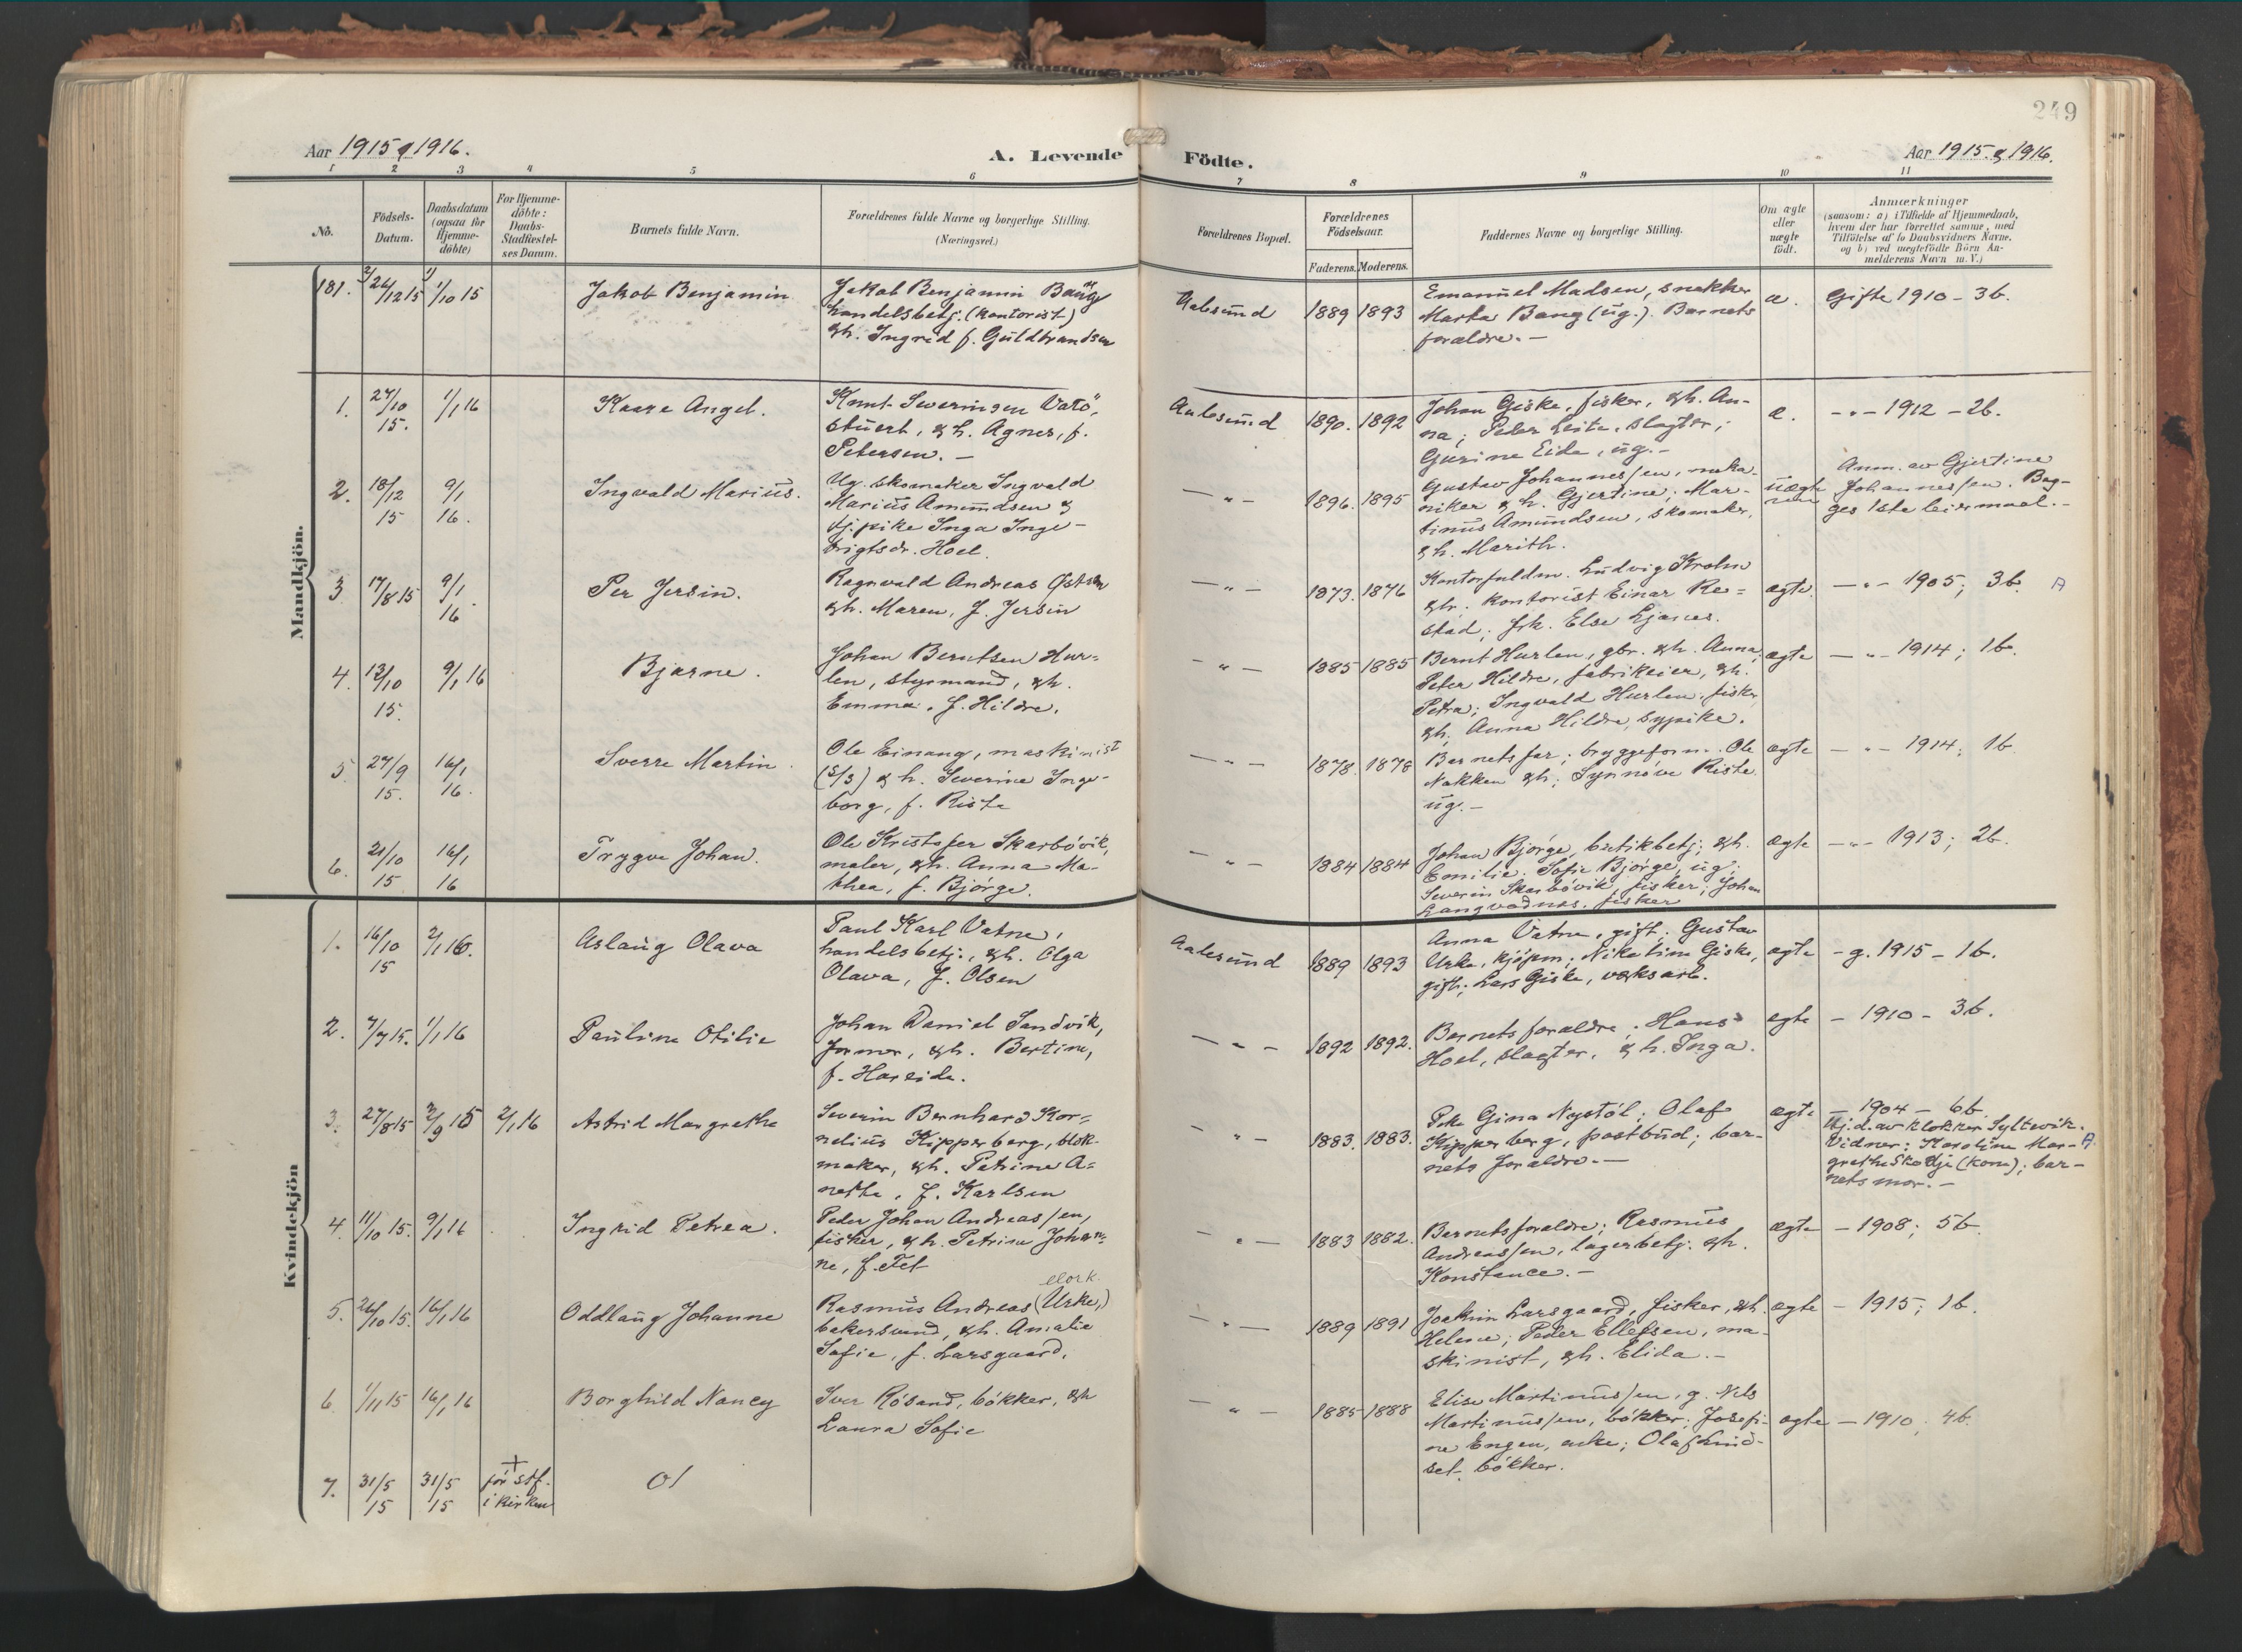 249
Aar 1915 & 1916.
A. Levende
Födte.
Aar 1915. & 1916.
1 2 3 4 5 6 7 8 9 10 11
No.
Födsels-
Datum.
Daabsdatum
(ogsaa for
Hjemme-
döbte)
For Hjemme-
döbte:
Daabs-
Stadfæstel-
ses Datum.
Barnets fulde Navn.
Forældrenes fulde Navne og borgerlige Stilling.
(Næringsvei.)
Forældrenes Bopæl.
Forældrenes
Födselsaar.
Faderens. Moderens.
Faddernes Navne og borgerlige Stilling.
Om ægte
eller
uægte
födt.
Anmærkninger
(saasom: a) i Tilfælde af Hjemmedaab,
hvem der har forrettet samme, med
Tilföielse af to Daabsvidners Navne,
og b) ved uægtefödte Börn An-
melderens Navn m. V.)
Mandkjön.
181.
1/10 15
Jakob Benjamin
Jakob Benjamin Bang
handelsbetj. (kontorist)
& h. Ingrid f. Guldbrandsen
Aalesund
1889 1893
Emanuel Madsen, snekker
Marta Bang (ug.). Barnets
forældre. —
æ.
Gifte 1910 - 3b.
1.
27/10
15.
1/1 16
Kaare Angel.
Knut Severinsen Vatö,
stuert, & h. Agnes, f.
Petersen. —
Aalesund
1890. 1892
Johan Giske, fisker, & h. An-
na; Peder Leite, slagter;
Gurine Eide, ug. —
æ.
— " — 1912 - 2b.
2.
18/12
15
9/1
16.
Ingvald Marius.
Ug. skomaker Ingvald
Marius Amundsen &
tj. pike Inga Inge-
brigtsdr. Hoel.
— " —
1896. 1895
Gustav Johannessen, meka-
niker & h. Gjertine; Mar-
tinus Amundsen, skomaker,
& h. Marith.
uægte
Anm. av Gjertine
Johannessen. Beg-
ges 1ste leiermaal. -
3
17/8 15
9/1
16
Per Jersin.
Ragnvald Andreas Østen
& h. Maren, f. Jersin
— " —
1873. 1876
Kontorfuldm. Ludvig Krohn
& fr. kontorist Einar Re=
stad; frk. Else Ljanes.
ægte.
— " — 1905; 3b. A
4.
13/10
15.
9/1 16
Bjarne.
Johan Berntsen Hur=
len, styrmand, & h.
Emma, f. Hildre.
— " —
1885 1885
Bernt Hurlen, gbr. & h. Anna;
Peter Hildre, fabrikeier, & h.
Petra; Ingvald Hurlen, fisker
& h. Anna Hildre, sypike.
ægte
— " — 1914; 1b.
5
27/9
15.
16/1
16.
Sverre Martin.
Ole Einang, maskinist
(S/S) & h. Severine Inge-
borg, f. Riste
— " —
1878. 1878
Barnets far; bryggeform. Ole
Nakken & h; Synnöve Riste
ug. —
ægte
— " — 1914; 1b.
6.
21/10
15
16/1
16
Trygve Johan.
Ole Kristofer Skarbövik,
maler, & h. Anna Ma-
thea, f. Björge.
— " —
1884 1884
Johan Björge, butikbetj; & h.
Emilie. Sofie Björge, ug;
Severin Skarbövik, fisker; Johan
Langvadnes, fisker
ægte
— " — 1913; 2b.
Kvindekjön
1.
16/10
15
2/1 16.
Aslaug Olava
Paul Karl Vatne,
handelsbetj., & h. Olga
Olava, f. Olsen
Aalesund
1889 1893
Anna Vatne, gift. Gustav
Urke, kjöpm; Nikoline Giske,
gift; Lars Giske, verksarb.
ægte
- g. 1915 - 1b.
2.
7/7 15.
1/1 16
Pauline Otilie
Johan Daniel Sandvik,
former, & h. Bertine,
f. Hareide.
— " —
1892 1892.
Barnets forældre; Hans
Hoel, slagter, & h. Inga.
ægte
- 1910 - 3b.
3.
27/8 15
2/1 16
Astrid Margrethe
Severin Bernhard Kor=
nelius Kipperberg, blok-
maker, & h. Petrine A=
nette, f. Karlsen
— " —
1883. 1883.
Pike Gina Nystöl; Olaf
Kipperberg, postbud; bar-
nets forældre. —
ægte
- 1904 - 6b.
Hj.d. av klokker Syltevik.
Vidner: Karoline Mar- A
grethe Skodje (kone); bar-
nets mor. —
4.
11/10 15.
9/1 16
Ingrid Petrea.
Peder Johan Andreassen,
fisker, & h. Petrine Johan-
ne, f. Fet
— " —
1883 1882.
Barnets forældre; Rasmus
Andreassen, lagerbetj. & h.
Konstance. —
ægte
- 1908; 5b.
5.
26/10 15.
16/1 16
Oddlaug Johanne
Rasmus Andreas (Urke,)
bakersvend, & h. Amalie
Sofie, f. Larsgaard.
— " —
1889 1891
Joakim Larsgaard, fisker, & h.
Helene; Peder Ellefsen, ma-
skinist, & h. Elida. —
ægte
- 1915; 1b.
6
1/11 15
16/1 16
Borghild Nancy
Iver Rösand, bökker, & h
Laura Sofie
— " —
1885 1888
Elise Martinussen, g. Nils
Martinussen, bökker; Josefi-
ne Engen, enke; Olaf Lind-
set, bökker.
ægte
- 1910, 4b.
7.
31/5
15
31/5
15
+
för stf.
i kirken